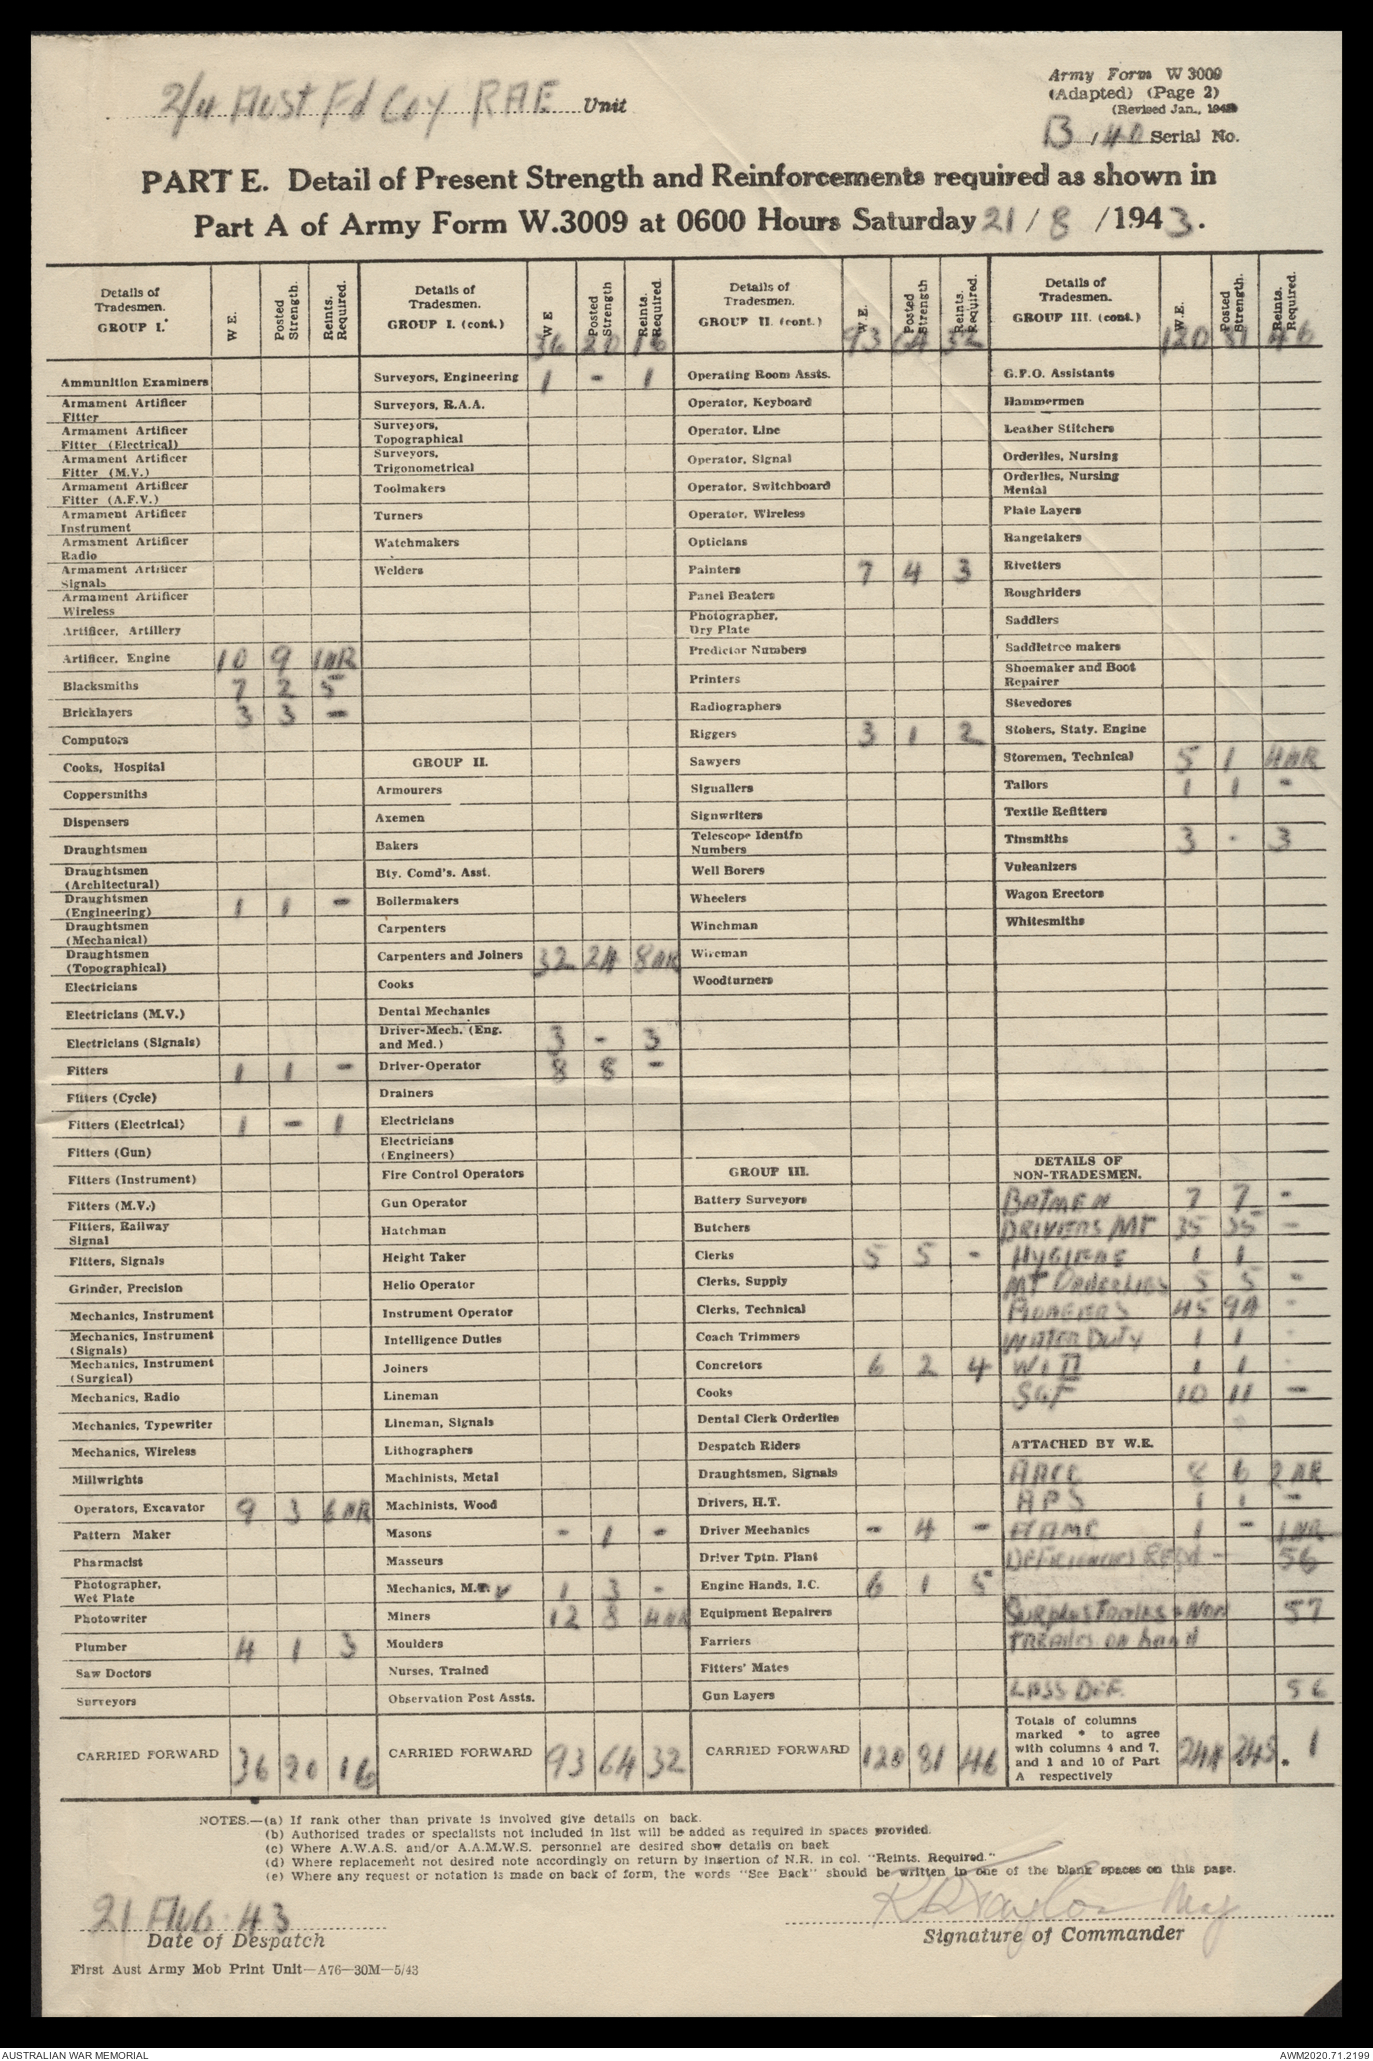 2/4 Aust Fd Coy RAE Unit
Army Form W 3009
(Adapted) (Page 2)
(Revised Jan., 1943)
B /40 Serial No.
PART E. Detail of Present Strength and Reinforcements required as shown in
Part A of Army Form W.3009 at 0600 Hours Saturday 21/8/1943.
Details of Tradesmen. GROUP I. W E. Posted Strength. Reints. Required.
Ammunition Examiners
Armament Artificer Fitter
Armament Artificer Fitter (Electrical)
Armament Artificer Fitter (M.V.)
Armament Artificer Fitter (A.F.V.)
Armament Artificer Instrument
Armament Artificer Radio
Armament Artificer Signals
Armament Artificer Wireless
Artificer, Artillery
Artificer, Engine 10 9 1NR
Blacksmiths 7 2 5
Bricklayers 3 3 -
Computors
Cooks, Hospital
Coppersmiths
Dispensers
Draughtsmen
Draughtsmen (Architectural)
Draughtsmen (Engineering) 1 1 -
Draughtsmen (Mechanical)
Draughtsmen (Topographical)
Electricians
Electricians (M.V.)
Electricians (Signals)
Fitters 1 1 -
Fitters (Cycle)
Fitters (Electrical) 1 - 1
Fitters (Gun)
Fitters (Instrument)
Fitters (M.V.)
Fitters, Railway Signal
Fitters, Signals
Grinder, Precision
Mechanics, Instrument
Mechanics, Instrument (Signals)
Mechanics, Instrument (Surgical)
Mechanics, Radio
Mechanics, Typewriter
Mechanics, Wireless
Millwrights
Operators, Excavator 9 3 6NR
Pattern Maker
Pharmacist
Photographer, Wet Plate
Photowriter
Plumber 4 1 3
Saw Doctors
Surveyors
CARRIED FORWARD 36 20 16
Details of Tradesmen. GROUP I. (cont.) W E Posted Strength Reints. Required.
36 20 16
Surveyors, Engineering 1 - 1
Surveyors, R.A.A.
Surveyors, Topographical
Surveyors, Trigonometrical
Toolmakers
Turners
Watchmakers
Welders
GROUP II.
Armourers
Axemen
Bakers
Bty. Comd's. Asst.
Boilermakers
Carpenters
Carpenters and Joiners 32 24 8NR
Cooks
Dental Mechanics
Driver-Mech. (Eng. and Med.) 3 - 3
Driver-Operator 8 8 -
Drainers
Electricians
Electricians (Engineers)
Fire Control Operators
Gun Operator
Hatchman
Height Taker
Helio Operator
Instrument Operator
Intelligence Duties
Joiners
Lineman
Lineman, Signals
Lithographers
Machinists, Metal
Machinists, Wood
Masons - 1 -
Masseurs
Mechanics, M.V 1 3 -
Miners 12 8 4NR
Moulders
Nurses, Trained
Observation Post Assts.
CARRIED FORWARD 93 64 32
Details of Tradesmen. GROUP II. (cont.) W E. Posted Strength Reints. Required.
93 64 32
Operating Room Assts.
Operator, Keyboard
Operator, Line
Operator, Signal
Operator, Switchboard
Operator, Wireless
Opticians
Painters 7 4 3
Panel Beaters
Photographer, Dry Plate
Predictor Numbers
Printers
Radiographers
Riggers 3 1 2
Sawyers
Signallers
Signwriters
Telescope Identfn Numbers
Well Borers
Wheelers
Winchman
Wireman
Woodturners
GROUP III.
Battery Surveyors
Butchers
Clerks 5 5 -
Clerks, Supply
Clerks, Technical
Coach Trimmers
Concretors 6 2 4
Cooks
Dental Clerk Orderlies
Despatch Riders
Draughtsmen, Signals
Drivers, H.T.
Driver Mechanics - 4 -
Driver Tptn. Plant
Engine Hands, I.C. 6 1 5
Equipment Repairers
Farriers
Fitters' Mates
Gun Layers
CARRIED FORWARD 120 81 46
Details of Tradesmen. GROUP III. (cont.) W.E. Posted Strength. Reints. Required.
120 81 46
G.P.O. Assistants
Hammermen
Leather Stitchers
Orderlies, Nursing
Orderlies, Nursing Mental
Plate Layers
Rangetakers
Rivetters
Roughriders
Saddlers
Saddletree makers
Shoemaker and Boot Repairer
Stevedores
Stokers, Staty. Engine
Storemen, Technical 5 1 4NR
Tailors 1 1 -
Textile Refitters
Tinsmiths 3 - 3
Vulcanizers
Wagon Erectors
Whitesmiths
DETAILS OF NON-TRADESMEN.
BATMEN 7 7 -
DRIVERS MT 35 35 -
HYGIENE 1 1
MT Orderlies 5 5 -
PIONEERS 45 94 -
WATER DUTY 1 1 -
WO II 1 1 -
SGT 10 11 -
ATTACHED BY W.E.
AACC 8 6 2NR
APS 1 1 -
AAMC 1 - 1NR
DEFICIENCIES REQD - 56
Surplus Trades & Non 57
trades on hand
LESS DEF. 56
Totals of columns marked * to agree with columns 4 and 7, and 1 and 10 of Part A respectively 244 245 . 1
NOTES.—(a) If rank other than private is involved give details on back.
(b) Authorised trades or specialists not included in list will be added as required in spaces provided.
(c) Where A.W.A.S. and/or A.A.M.W.S. personnel are desired show details on back
(d) Where replacement not desired note accordingly on return by insertion of N.R. in col. "Reints. Required."
(e) Where any request or notation is made on back of form, the words "See Back" should be written in one of the blank spaces on this page.
21 AUG. 43
Date of Despatch
Taylor Maj
Signature of Commander
First Aust Army Mob Print Unit—A76—30M—5/43
AUSTRALIAN WAR MEMORIAL
AWM2020.71.2199